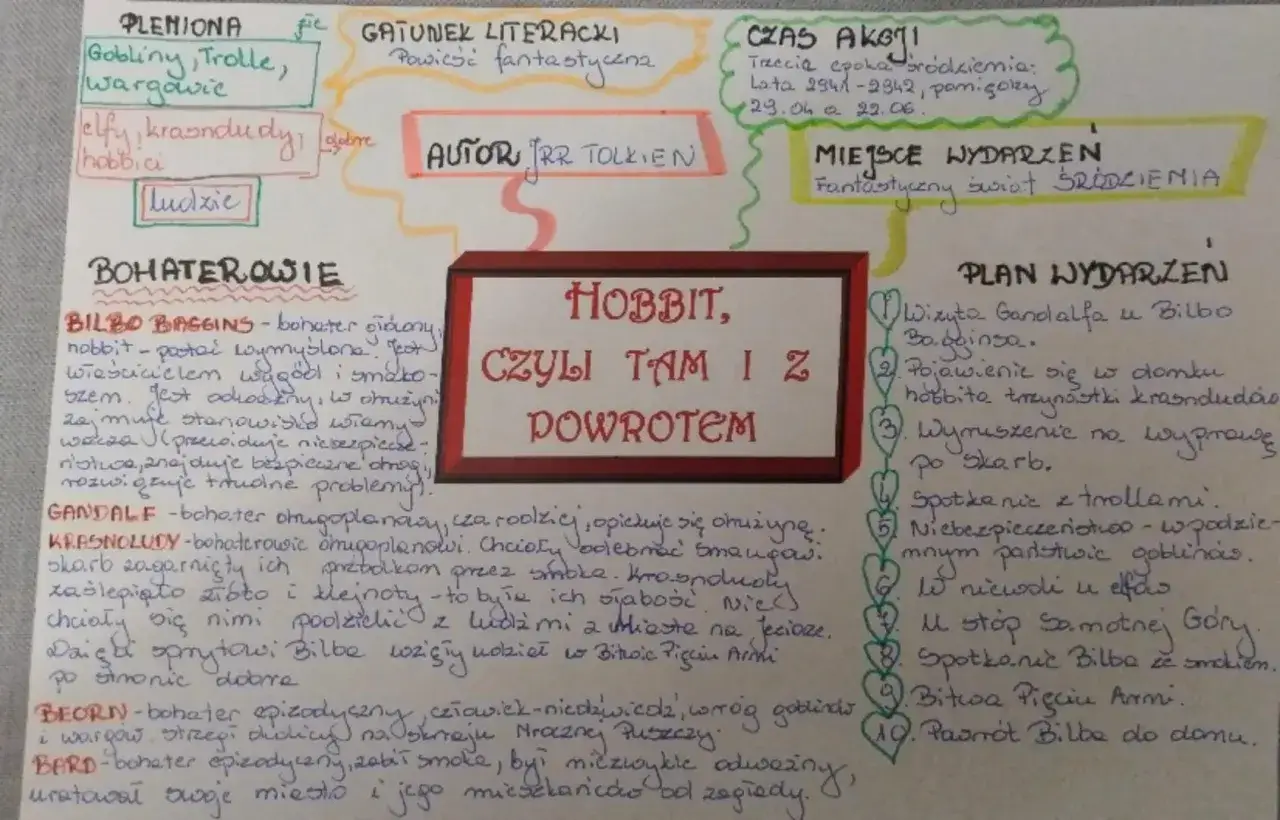 PLEMIONA
złe
Gobliny, Trolle,
wargowie
elfy, krasnoludy,
hobbici
dobre
ludzie
GATUNEK LITERACKI
Powieść fantastyczna
CZAS AKCJI
Trzecia epoka śródziemia:
Lata 2941-2942, pomiędzy
29.04 a 22.06.
AUTOR JRR TOLKIEN
MIEJSCE WYDARZEŃ
Fantastyczny świat ŚRÓDZIEMIA
HOBBIT,
CZYLI TAM I Z
POWROTEM
BOHATEROWIE
BILBO BAGGINS - bohater główny,
hobbit - postać wymyślona. Jest
właścicielem wygód i smako-
szem. Jest odważny, w drużynie
zajmuje stanowisko włamy-
wacza (przewiduje niebezpiecze-
ństwa, znajduje bezpieczne drogi,
rozwiązuje trudne problemy).
GANDALF - bohater drugoplanowy, czarodziej, opiekuje się drużyną.
KRASNOLUDY - bohaterowie drugoplanowi. Chciały odebrać Smaugowi
skarb zagarnięty ich przodkom przez smoka. Krasnoludy
zaślepiało złoto i klejnoty - to była ich słabość. Nie
chciały się nimi podzielić z ludźmi z Miasta na Jeziorze.
Dzięki sprytowi Bilba wzięły udział w Bitwie Pięciu Armii
po stronie dobra
BEORN - bohater epizodyczny, człowiek-niedźwiedź, wróg goblinów
i wargów. strzegł okolicy na skraju Mrocznej Puszczy.
BARD - bohater epizodyczny, zabił smoka, był niezwykle odważny,
uratował swoje miasto i jego mieszkańców od zagłady.
PLAN WYDARZEŃ
1. Wizyta Gandalfa u Bilbo
Bagginsa.
2. Pojawienie się w domku
hobbita trzynastki krasnoludów
3. Wyruszenie na wyprawę
po skarb.
4. Spotkanie z trollami.
5. Niebezpieczeństwo - w podzie-
mnym państwie goblinów.
6. W niewoli u elfów
7. U stóp Samotnej Góry.
8. Spotkanie Bilba ze smokiem.
9. Bitwa Pięciu Armi.
10. Powrót Bilba do domu.